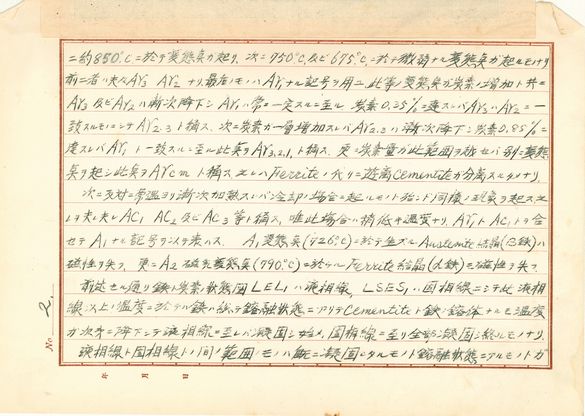 ニ約850°C=於テ変態奌ガ起リ、次ニ750°C及ビ675°C=於テ微弱ナル変態奌ガ起ルモノナリ
前二者ハ夫々Ar3 Ar2 ナリ最后ノモノハAr1ナル記号ヲ用ユ此等ノ変態奌ガ炭素ノ増加ト共ニ
Ar3及ビAr2ハ漸次降下シAr1ハ常ニ一定スルニ至ル 炭素0.35%ニ達スレバAr3ハAr2ニ一
致スルモノニシテAr2.3ト稱ス、次ニ炭素ガ一層増加スレバAr2.3ハ漸次降下シ炭素0.85%ニ
度スレバAr1ト一致スルニ至ル此奌ヲAr3.2.1ト稱ス、更ニ炭素量ガ此範囲ヲ越セバ別ニ変態
奌ヲ起シ此奌ヲArcmト稱スエレハFerriteノ代リニ遊離Cementiteガ分離スルタメナリ、
次ニ反対ニ常温ヨリ漸次加熱スレバ冷却ノ場合ニ起ルモノト殆ンド同様ノ現象ヲ起スエ
レヲ夫々AC1 AC2及AC3等ト稱ス、唯此場合ハ稍低キ温度ナリ、Ar1トAC1トヲ合
セテA1ナル記号ヲ以テ表ハス A1変態奌(726°C)ニ於テ生ズルAustenite結晶(γ鉄)ハ
磁性ヲ失フ、更ニA2磁気変態奌(790°C)ニ於テハFerrite結晶(α鉄)モ磁性ヲ失フ、
前述セル通リ鉄ト炭素状態図LELIハ液相線、LSESIハ固相線ニシテ此液相
線以上ノ温度ニ於テハ鉄ハ総テ鎔融状態ニアリテCementiteト鉄ノ鎔体ナルモ温度
ガ次第ニ降下シテ液相線ニ至レバ凝固シ始メ、固相線ニ至リ全部凝固シ終ルモノナリ、
液相線ト固相線トノ間ノ範囲ノモノハ既ニ凝固シタルモノト鎔融状態ニアルモノトガ
No. 2.
年 月 日